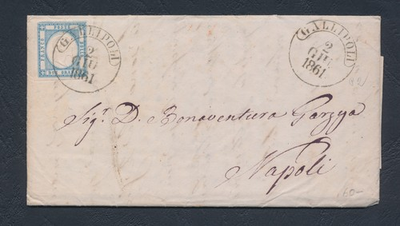 GALLIPOLI
2
GIU
1861
GALLIPOLI
2
GIU
1861
Sig.r D. Bonaventura Garzya
Napoli